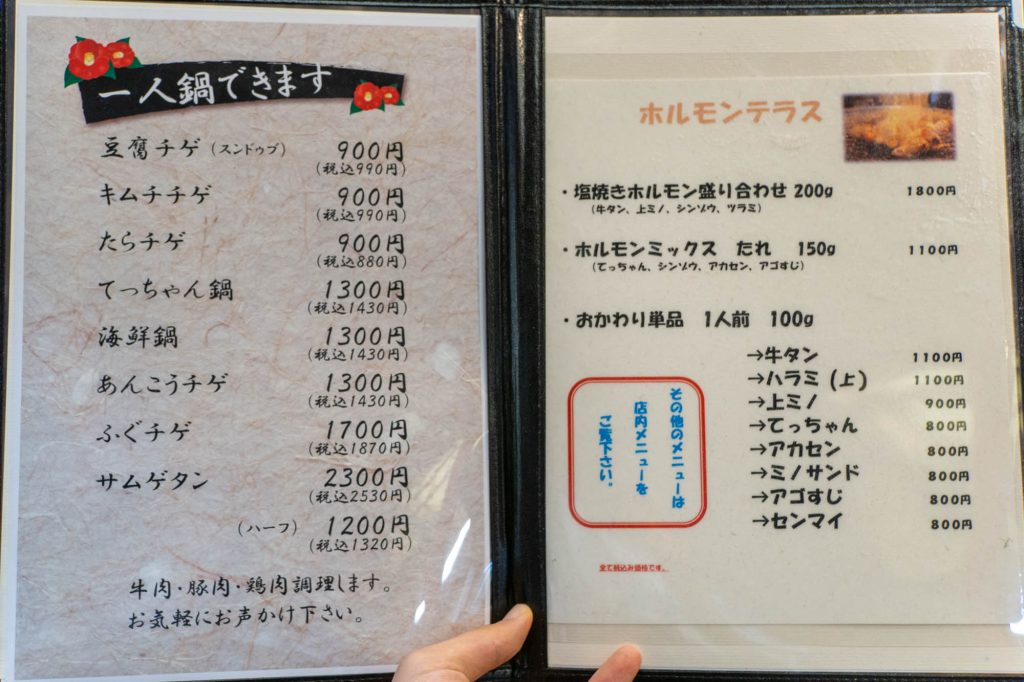 一人鍋できます
豆腐チゲ（スンドゥブ） 900円
（税込990円）
キムチチゲ 900円
（税込990円）
たらチゲ 900円
（税込880円）
てっちゃん鍋 1300円
（税込1430円）
海鮮鍋 1300円
（税込1430円）
あんこうチゲ 1300円
（税込1430円）
ふぐチゲ 1700円
（税込1870円）
サムゲタン 2300円
（税込2530円）
（ハーフ） 1200円
（税込1320円）
牛肉・豚肉・鶏肉調理します。
お気軽にお声かけ下さい。
ホルモンテラス
・塩焼きホルモン盛り合わせ 200g 1800円
（牛タン、上ミノ、シンゾウ、ツラミ）
・ホルモンミックス たれ 150g 1100円
（てっちゃん、シンゾウ、アカセン、アゴすじ）
・おかわり単品 1人前 100g
→牛タン 1100円
→ハラミ（上） 1100円
→上ミノ 900円
→てっちゃん 800円
→アカセン 800円
→ミノサンド 800円
→アゴすじ 800円
→センマイ 800円
その他のメニューは
店内メニューを
ご覧下さい。
全て税込み価格です。